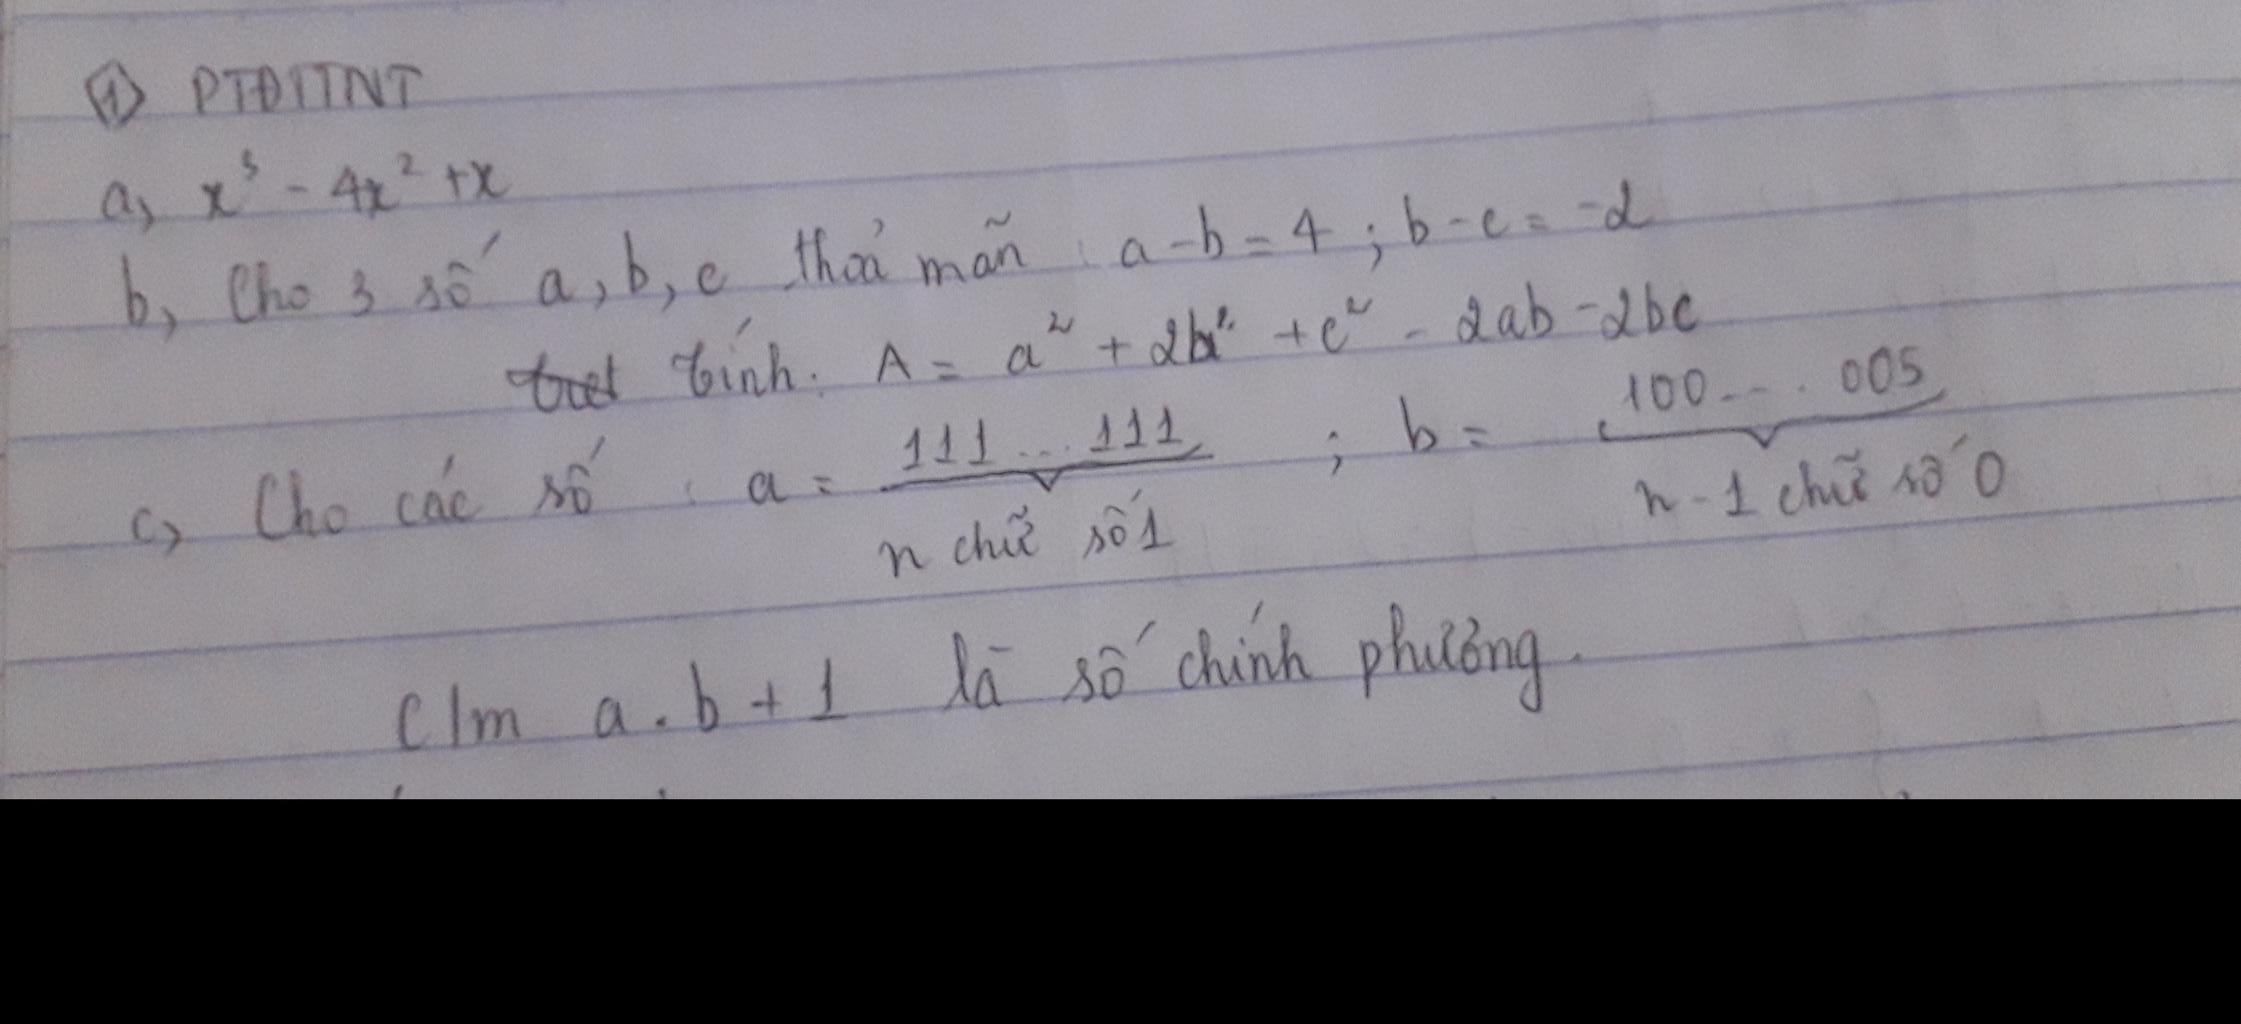 ① PTĐTTNT
a, x³ - 4x² + x
b, Cho 3 số a, b, c thoả mãn : a - b = 4 ; b - c = -2
Tính. A = a² + 2b² + c² - 2ab - 2bc
c, Cho các số : a = 111...111 ; b = 100... 005
n chữ số 1 n - 1 chữ số 0
C/m a.b + 1 là số chính phương.